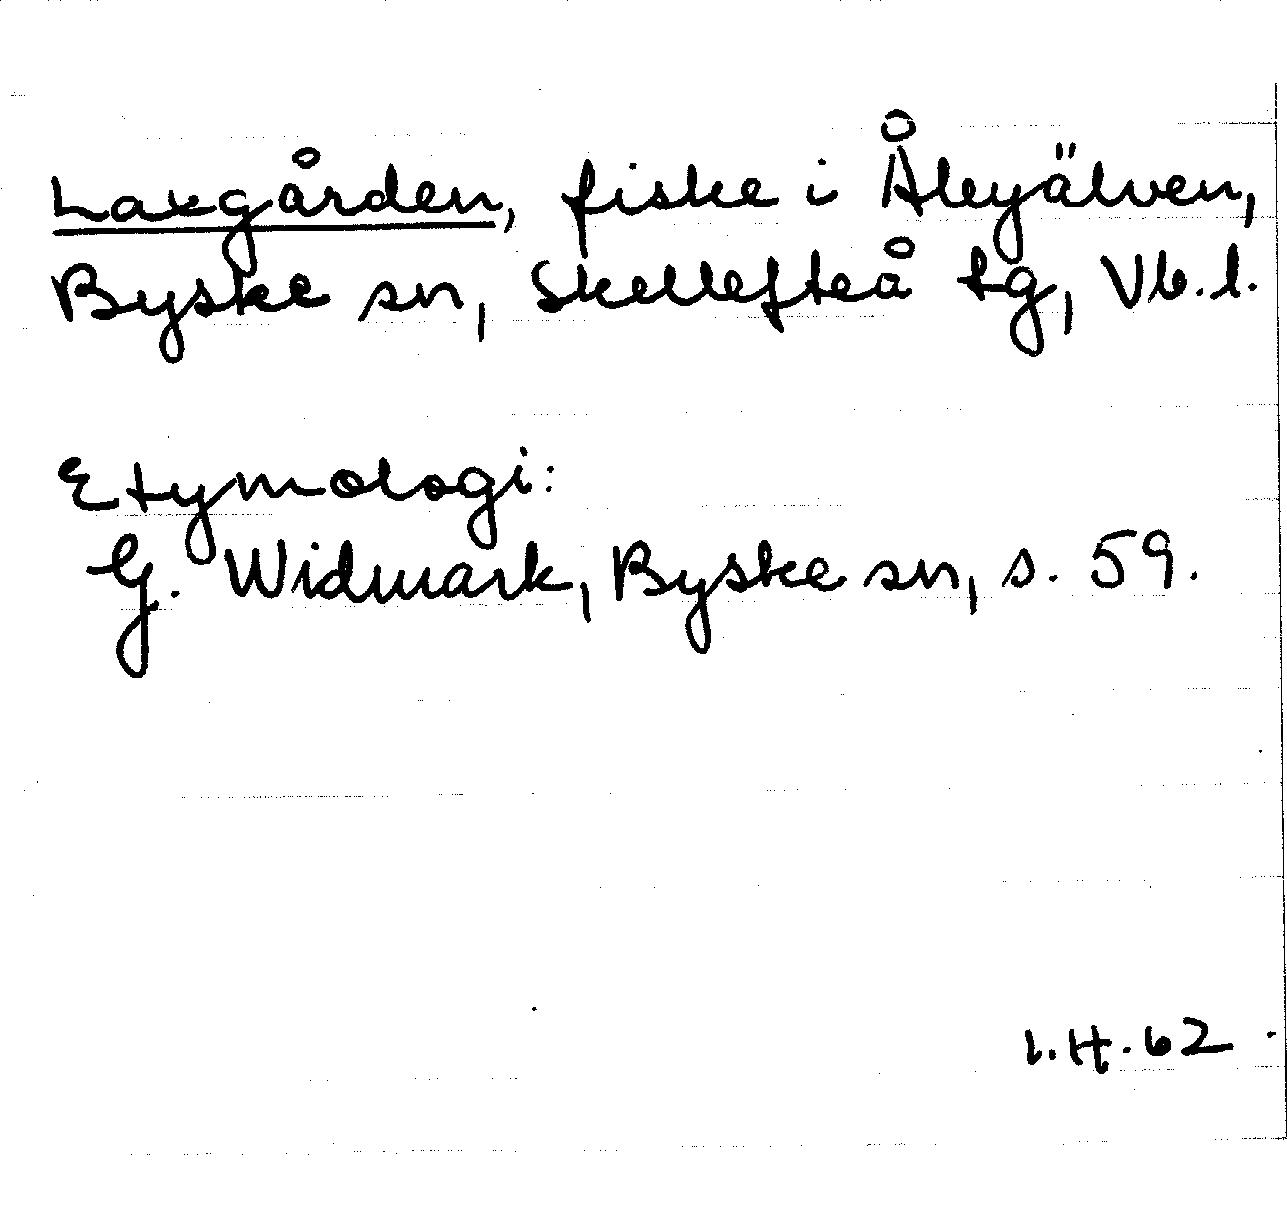 Laxgården, fiske i Åbyälven,
Byske sn, Skellefteå tg, Vb.l.
Etymologi:
G. Widmark, Byske sn, s. 59.
I.H.62